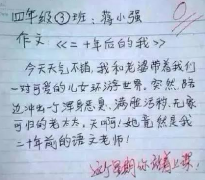 四年级③班：蒋小强
作文《二十年后的我》
今天天气不错，我和老婆带着我们
一对可爱的儿女环游世界。突然，路
边冲出一个浑身恶臭、满脸污物、无家
可归的老太太，天啊！她竟然是我
二十年前的语文老师！
这个星期你站着上课！